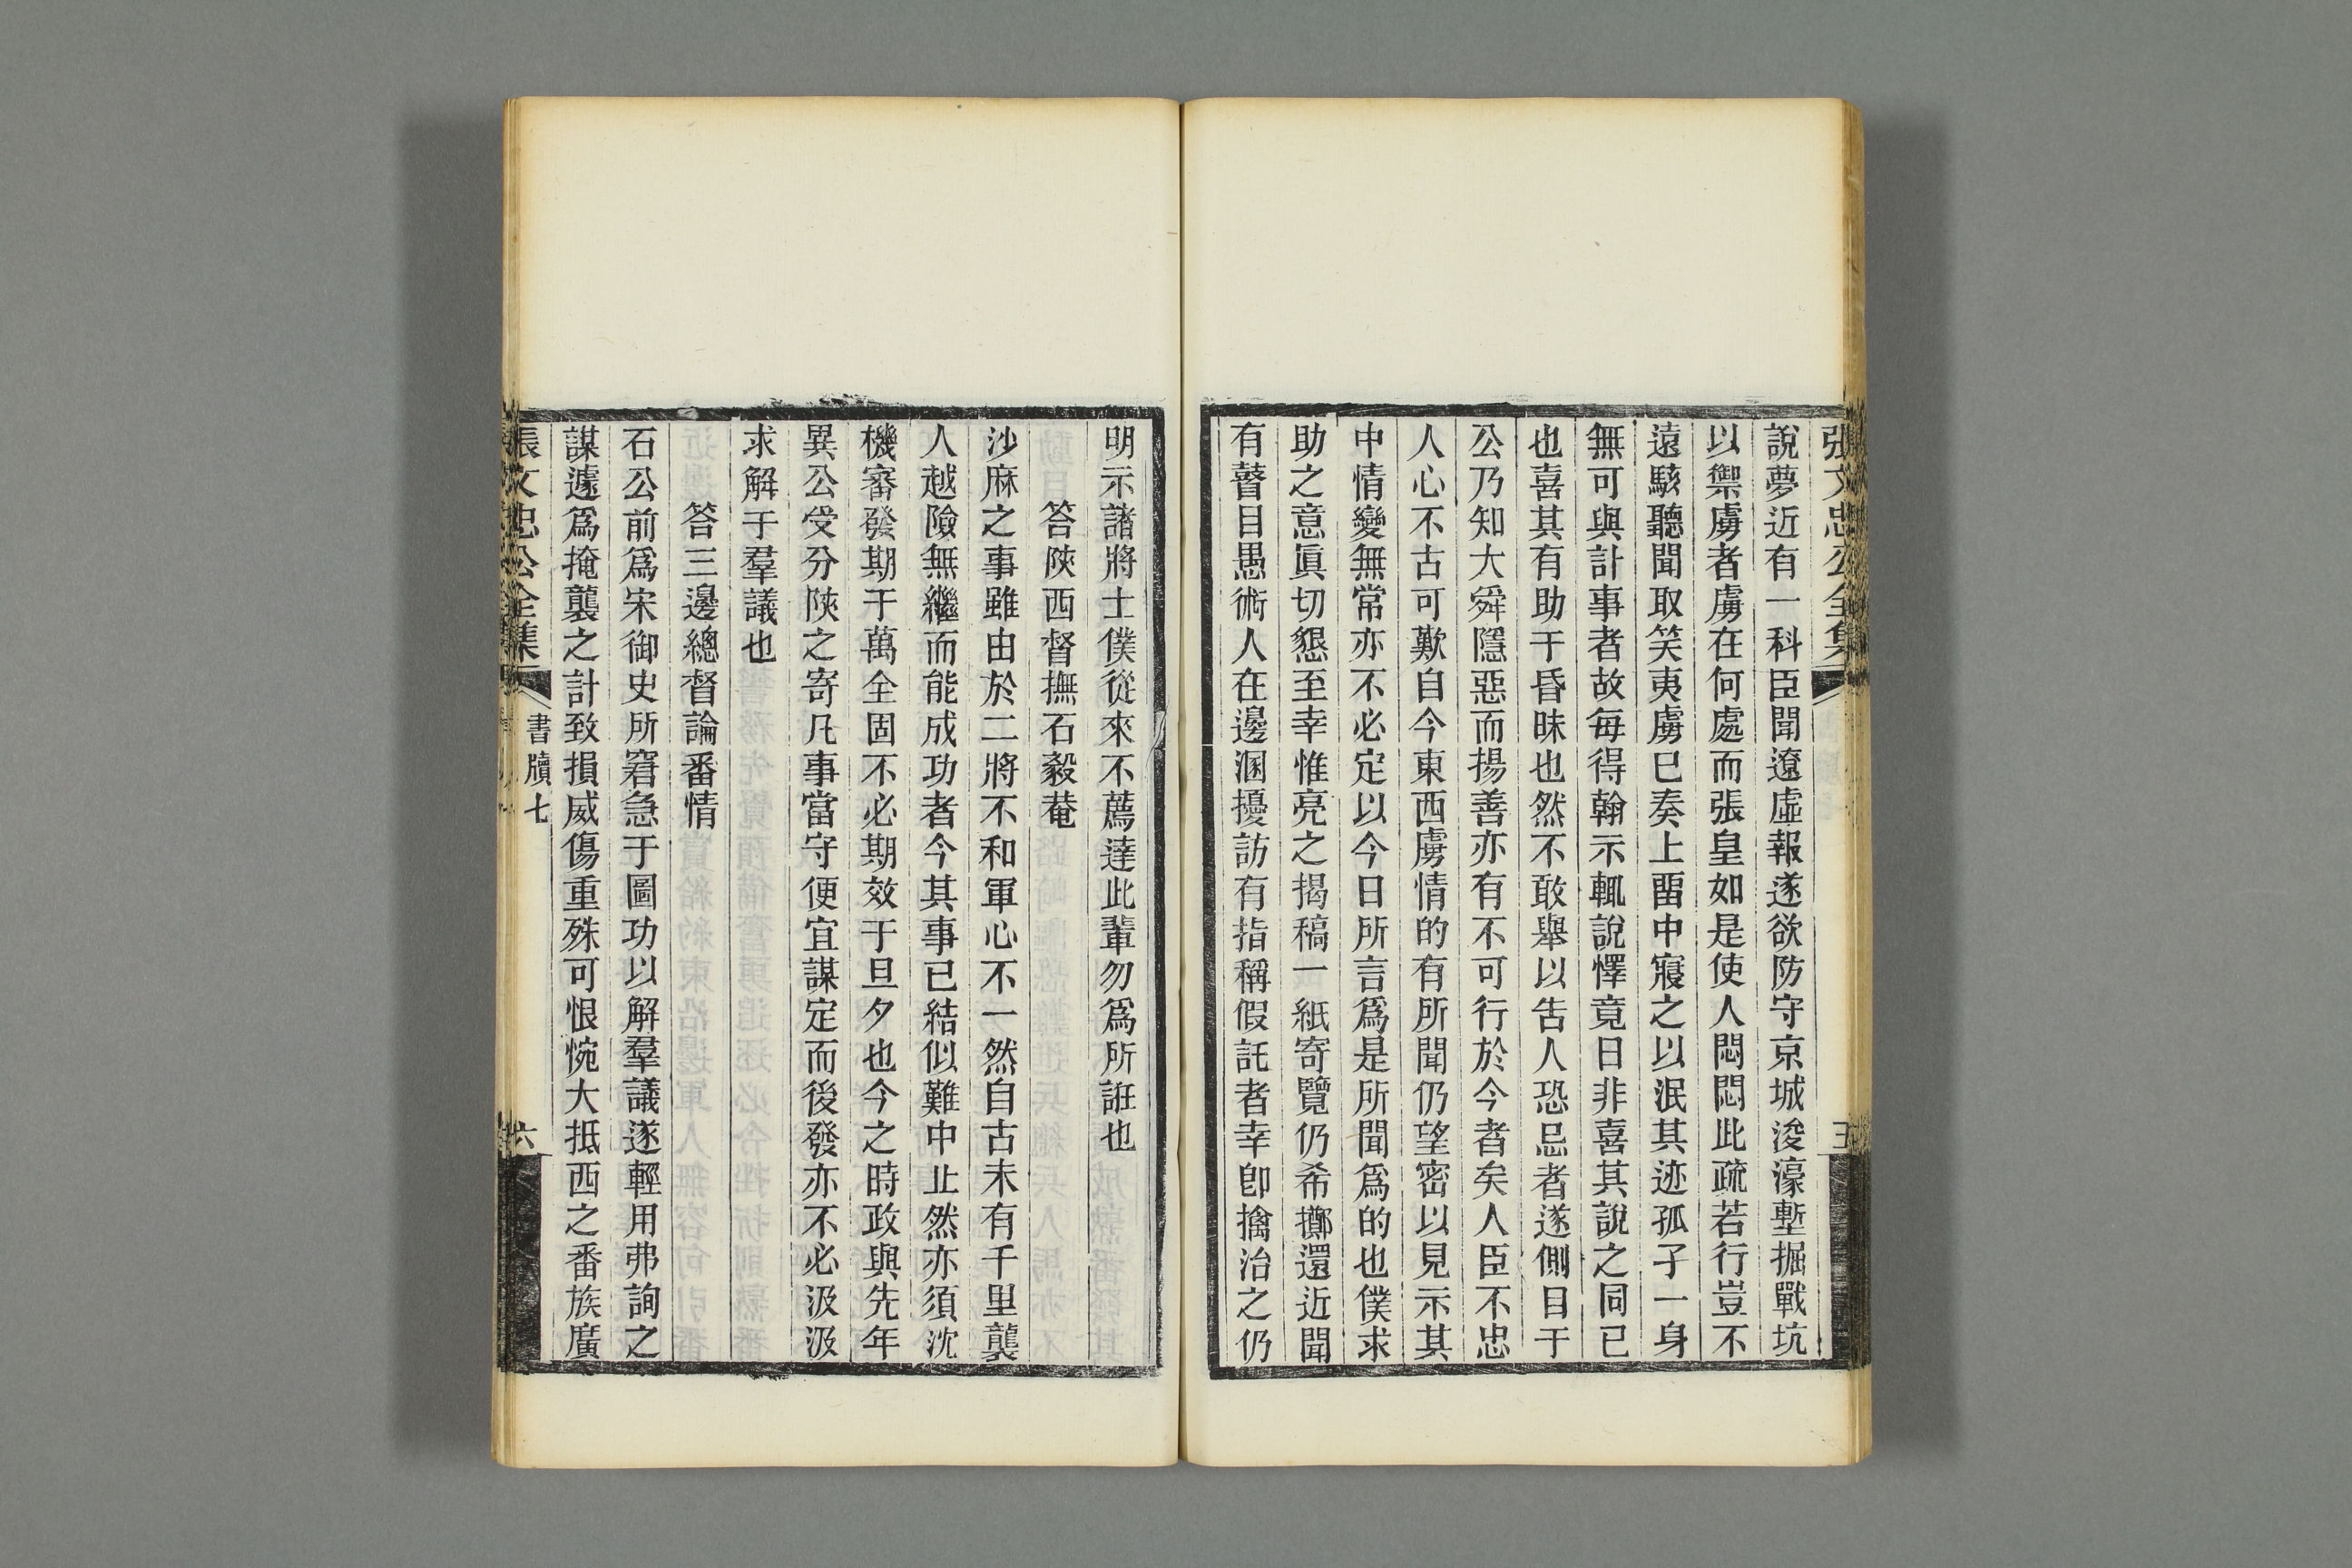 張文忠公全集
五
說夢近有一科臣聞遼虛報遂欲防守京城浚濠塹掘戰坑
以禦虜者虜在何處而張皇如是使人悶悶此疏若行豈不
遠駭聽聞取笑夷虜巳奏上畱中寢之以泯其迹孤孑一身
無可與計事者故每得翰示輒說懌竟日非喜其說之同已
也喜其有助于昏昧也然不敢舉以告人恐忌者遂側目于
公乃知大舜隱惡而揚善亦有不可行於今者矣人臣不忠
人心不古可歎自今東西虜情的有所聞仍望密以見示其
中情變無常亦不必定以今日所言爲是所聞爲的也僕求
助之意眞切懇至幸惟亮之揭稿一紙寄覽仍希擲還近聞
有瞽目愚術人在邊溷擾訪有指稱假託者幸卽擒治之仍
明示諸將士僕從來不薦達此輩勿爲所誑也
答陝西督撫石毅菴
沙麻之事雖由於二將不和軍心不一然自古未有千里襲
人越險無繼而能成功者今其事已結似難中止然亦須沈
機審發期于萬全固不必期效于旦夕也今之時政與先年
異公受分陝之寄凡事當守便宜謀定而後發亦不必汲汲
求解于羣議也
答三邊總督論番情
石公前爲宋御史所窘急于圖功以解羣議遂輕用弗詢之
謀遽爲掩襲之計致損威傷重殊可恨惋大抵西之番族廣
張文忠公全集
書牘七
六